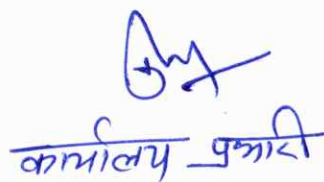 कार्यालय प्रभारी